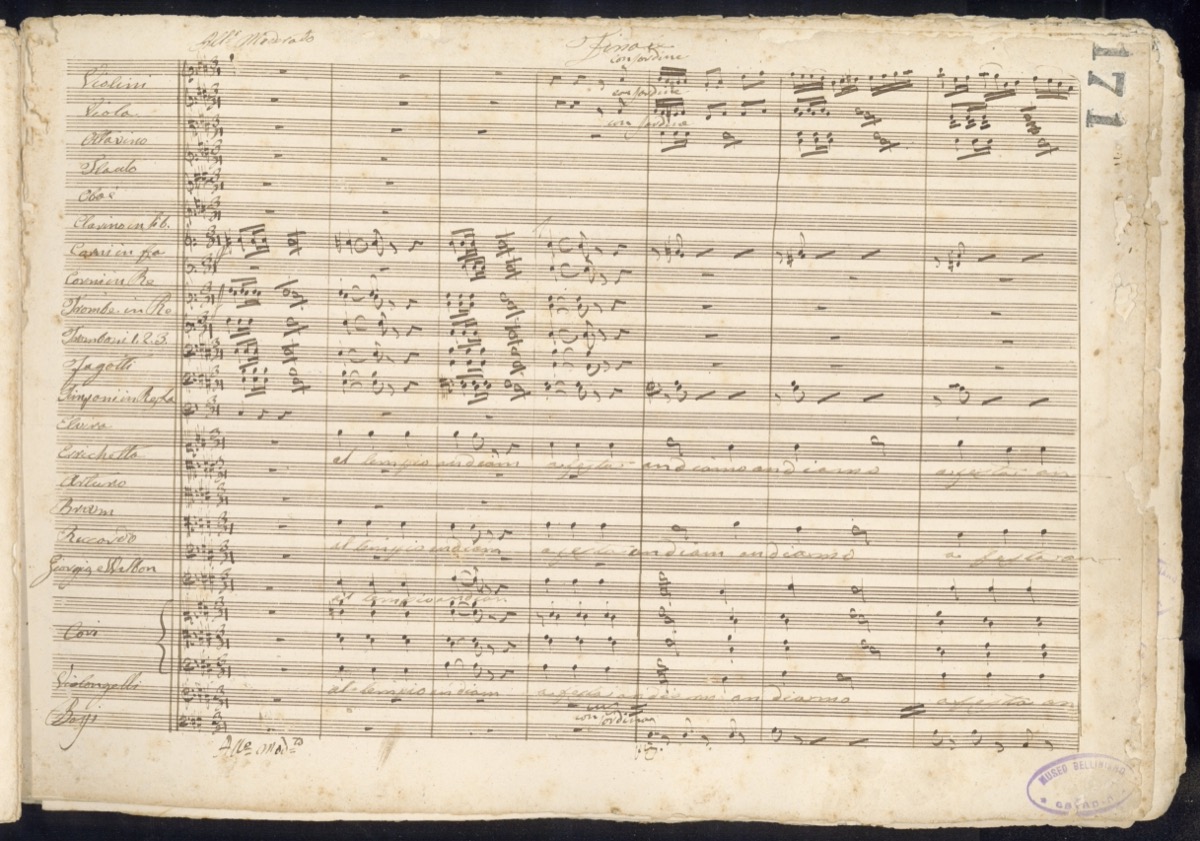 All.º Moderato
Finale
con sordine
171
Violini
con sordine
Viola
con sordine
Ottavino
Flauto
Oboè
Clarino in
Corni in
Corni in Re
Trombe in Re
Tromboni 1. 2. 3.
Fagotti
Timpani in Re
Elvira
Enrichetta
al tempio andiam a festar andiamo andiamo a festar an
Arturo
Bruom
Riccardo
al tempio andiam a festar andiam andiamo a festar an
Giorgio e Walton
al tempio andiam
Cori
Violongelli
al tempio andiam a festar andiamo andiamo a festar an
con sordina
Bassi
All.º Mod.to
MUSEO BELLINIANO